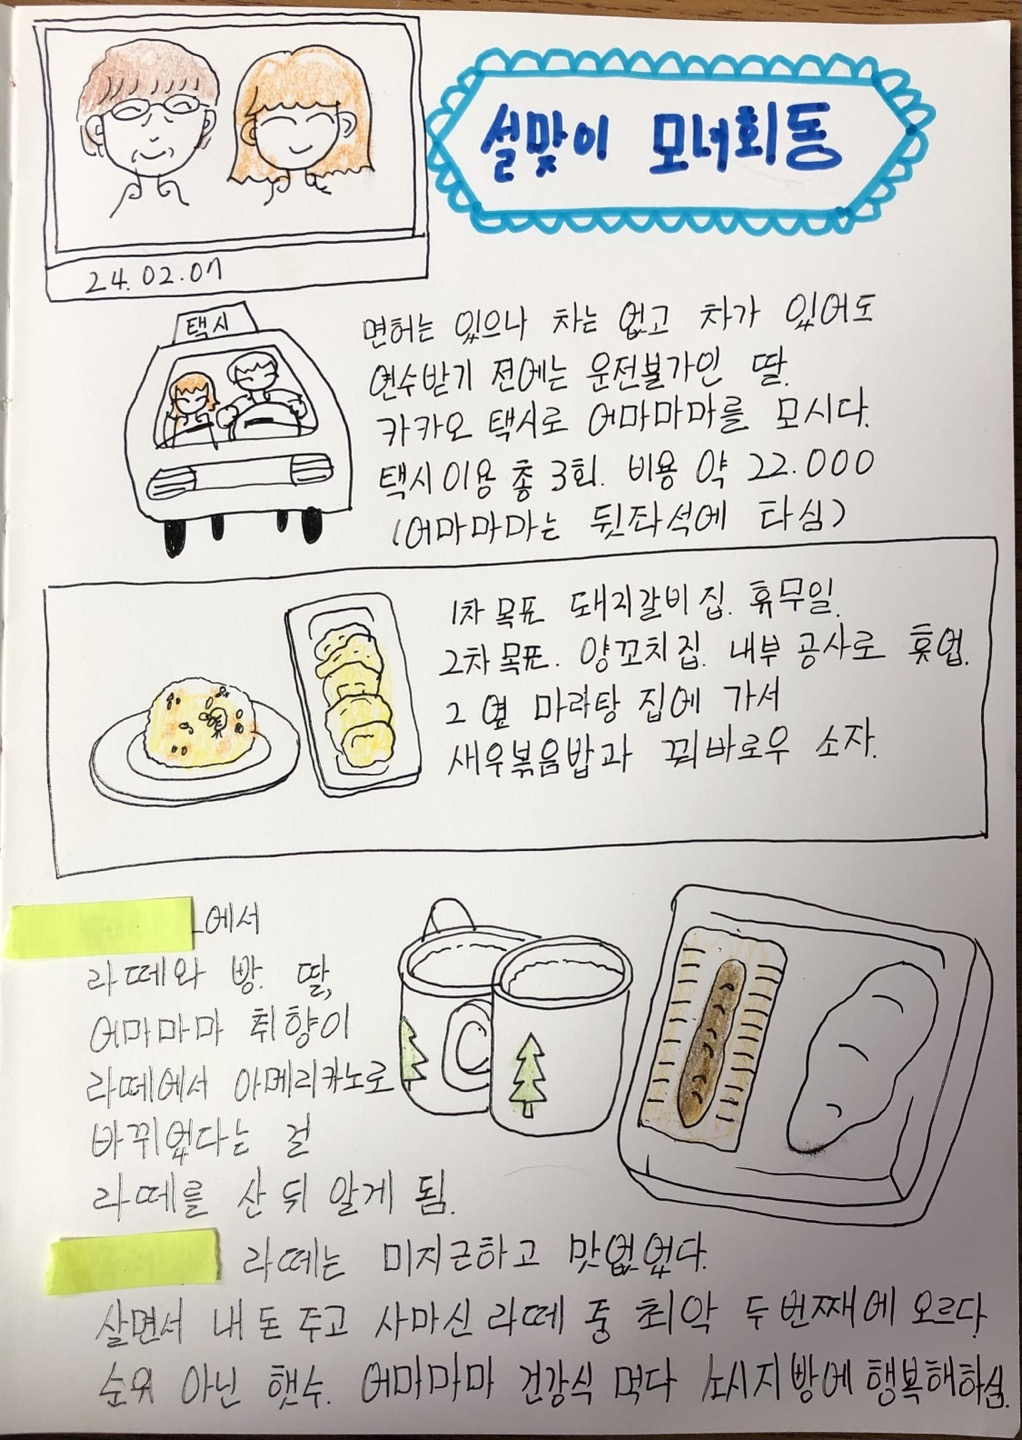 설맞이 모녀회동
24.02.07
택시
면허는 있으나 차는 없고 차가 있어도
연수받기 전에는 운전불가인 딸.
카카오 택시로 어마마마를 모시다.
택시이용 총 3회. 비용 약 22.000
(어마마마는 뒷좌석에 타심)
1차 목표 돼지갈비집. 휴무일.
2차 목표. 양꼬치집. 내부 공사로 휴업.
그 옆 마라탕 집에 가서
새우볶음밥과 꿔바로우 소자.
에서
라떼와 빵. 딸,
어마마마 취향이
라떼에서 아메리카노로
바뀌었다는 걸
라떼를 산 뒤 알게 됨.
라떼는 미지근하고 맛없었다.
살면서 내 돈 주고 사마신 라떼 중 최악 두번째에 오르다.
순위 아닌 횟수. 어마마마 건강식 먹다 소시지빵에 행복해하심.